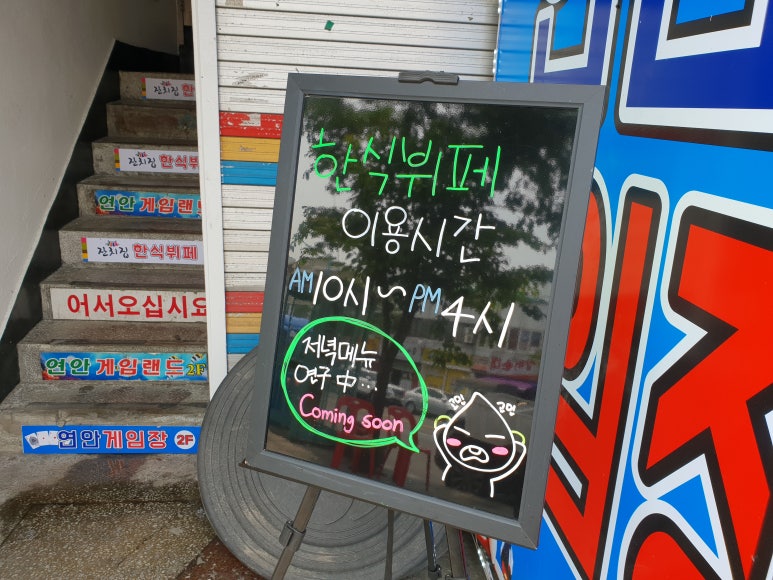 한식뷔페
이용시간
AM 10시 ~ PM 4시
저녁메뉴
연구 中...
Coming soon
고민 고민
잔치집 한
잔치집 한식뷔
연안 게임랜드
잔치집 한식뷔페
어서오십시요
연안 게임랜드 2F
연안게임장 2F